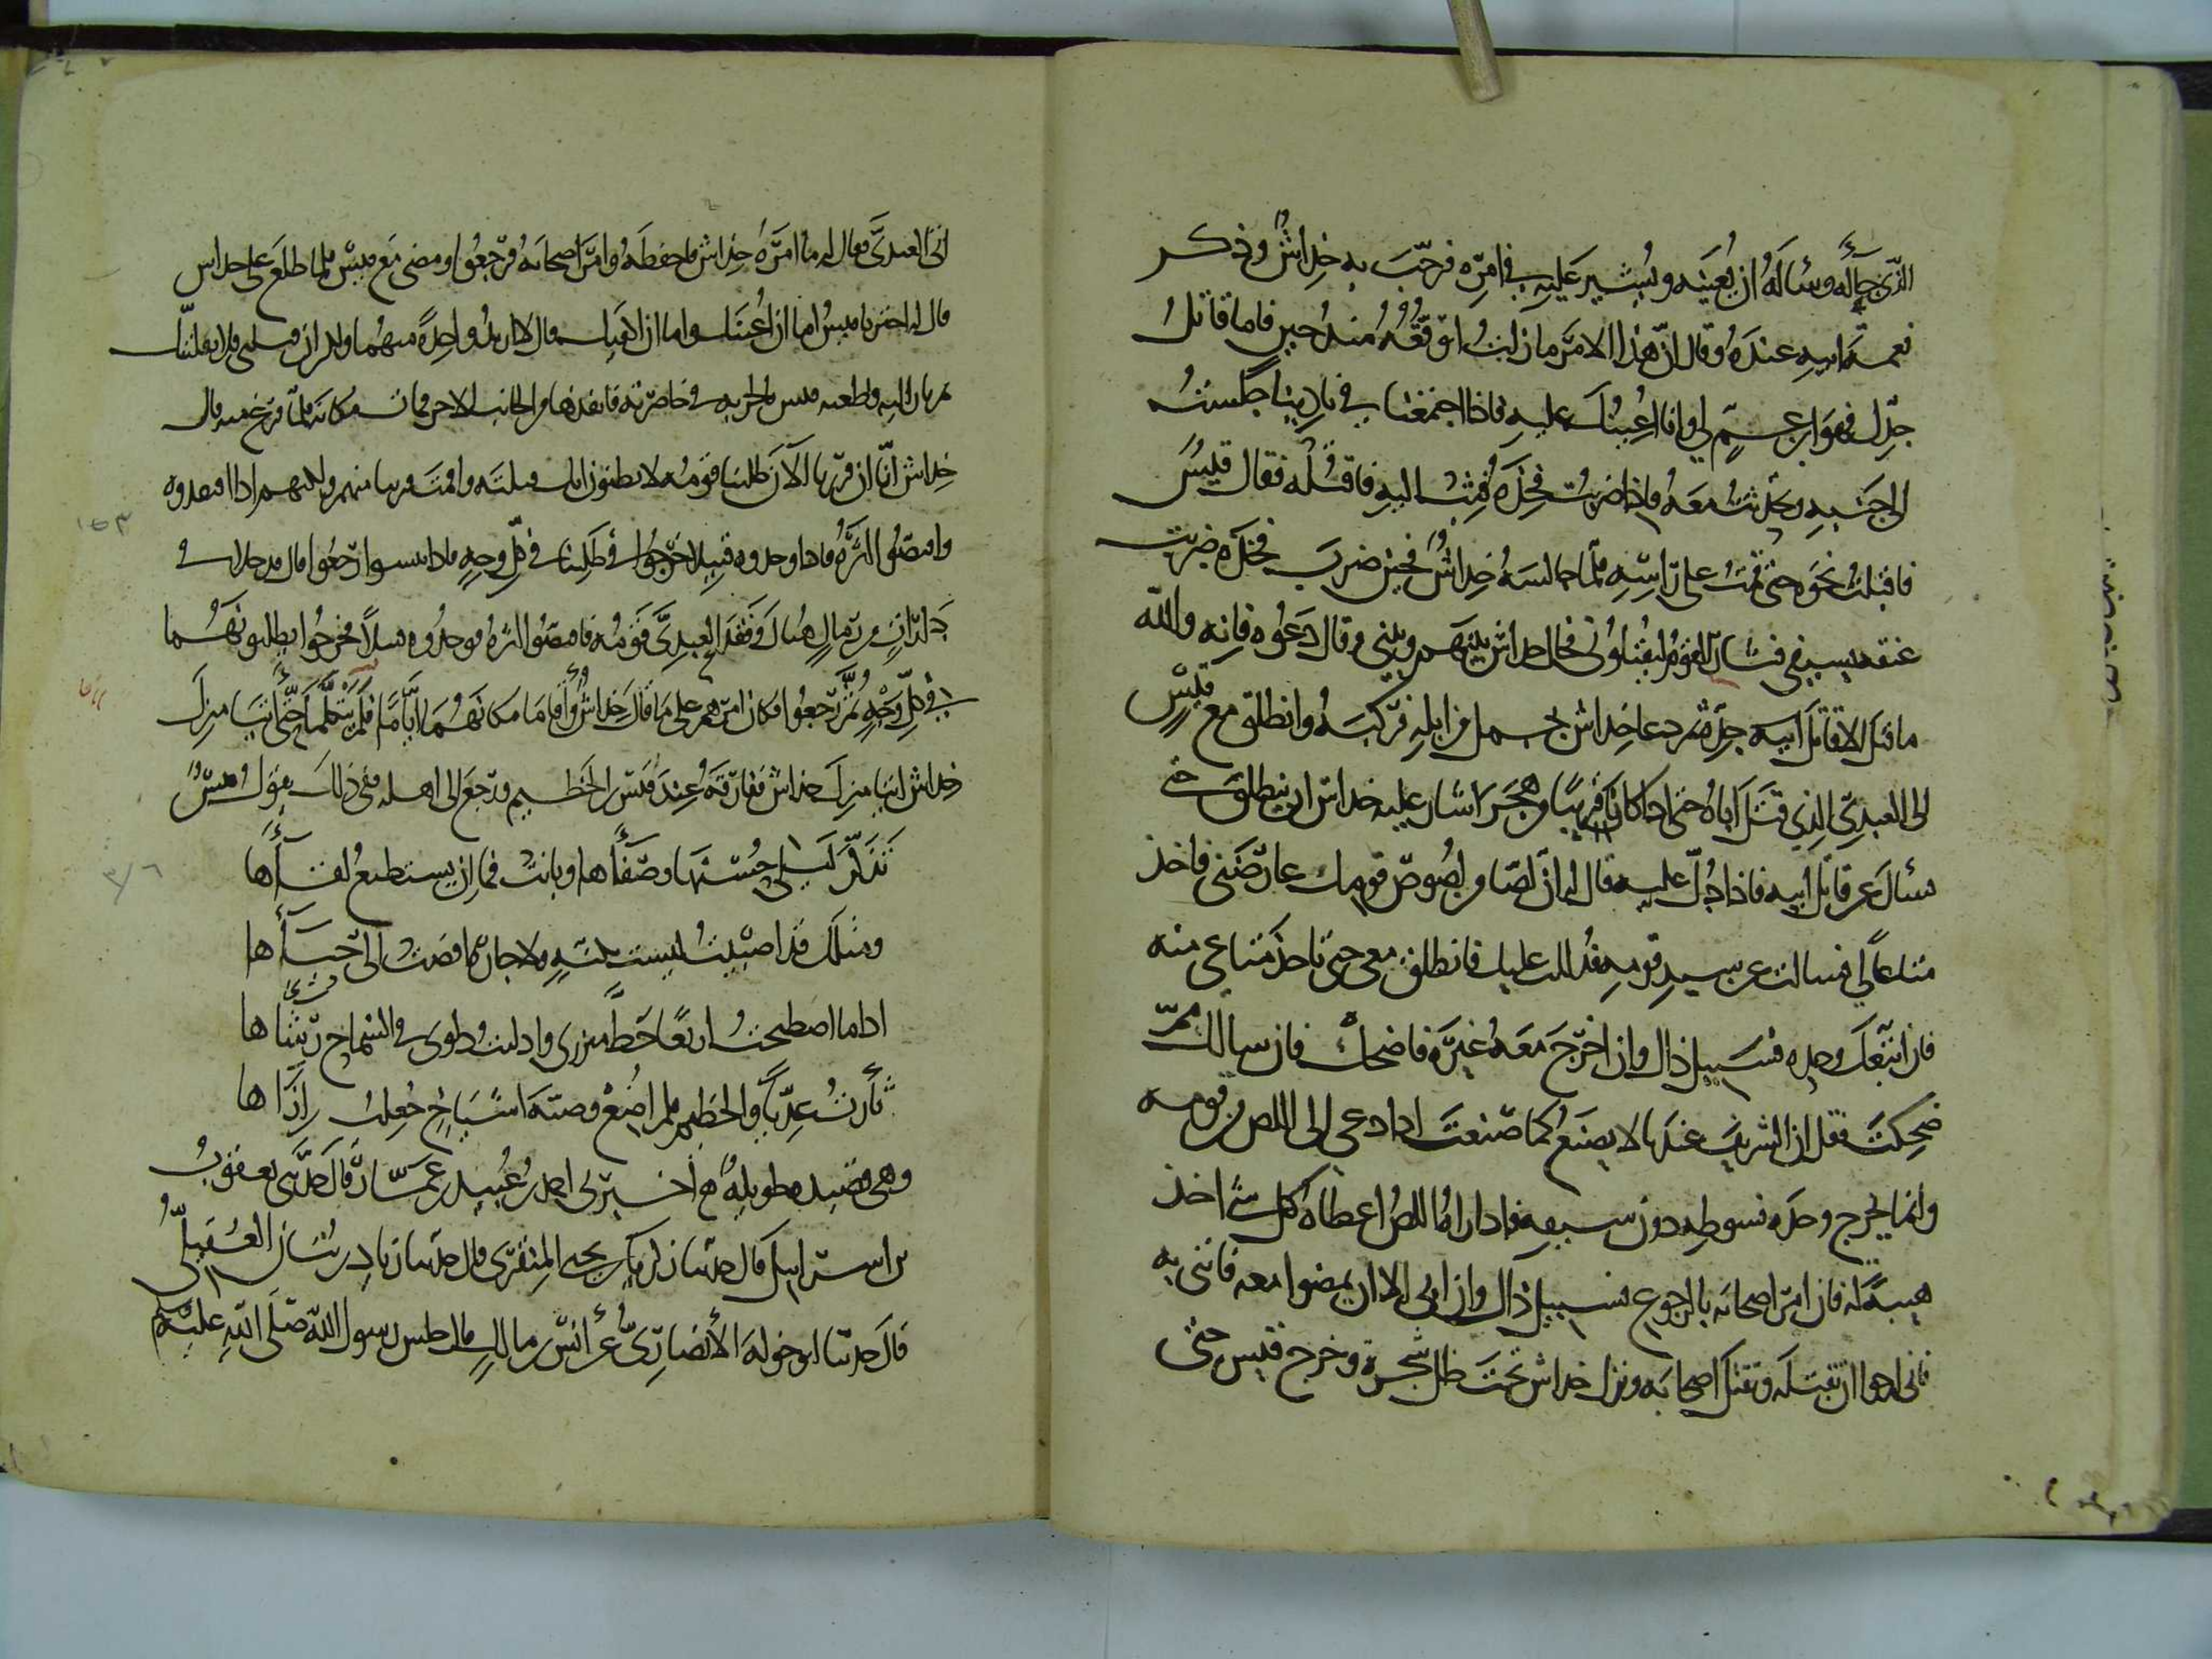 الذي جاله وسأله ان يعينه ويشير عليه في امره فرحب به خداش وذكر
نعمة ابيه عنده وقال ان هذا الامر ما زلت اتوقعه منذ حين فاما قاتل
جدك فهو ابن عم لي وانا اعينك عليه فاذا اجتمعنا في نادينا جلست
الى جنبه وتحدثت معه فاذا ضربت فخذه فثب اليه فاقتله فقال قيس
فاقبلت نحوه حتى قمت على راسه لما جالسه خداش فحين ضرب فخذه ضربت
عنقه بسيفي فثار القوم ليقتلوني فحال خداش بينهم وبيني وقال دعوه فانه والله
ما قتل الا قاتل ابيه جده ثم دعا خداش بجمل من ابله فركبه وانطلق مع قيس
الى العبدي الذي قتل اباه حتى اذا كانا قريبا من هجر اشار عليه خداش ان ينطلق حتى
يسأل عن قاتل ابيه فاذا دل عليه قال له ان لصا من لصوص قومك عارضني فاخذ
متاعا لي فسالت عن سيد قومه فدللت عليك فانطلق معي حتى تاخذ متاعي منه
فان اتبعك وحده فسبيل ذاك وان اخرج معه غيره فاضحك فان سالك مم
ضحكت فقل ان الشريف عندنا لا يصنع كما صنعت اذا دعي الى اللص من قومه
وانما يخرج وحده بسوطه دون سيفه فاذا راه اللص اعطاه كل شئ اخذ
هيبة له فان امر اصحابه بالرجوع فسبيل ذاك وان ابى الا ان يمضوا معه فاتني به
فاني ارجوا ان تقتله وتقتل اصحابه ونزل خداش تحت ظل شجرة وخرج قيس حتى
اتى العبدي فقال له ما امره خداش فاحفظه وامر اصحابه فرجعوا ومضى مع قيس فلما طلع على خداش
قال له اختر يا قيس اما ان اعينك واما ان اكفيك قال لا اريد واحدة منهما ولكن ان قتلني فلا يفلتنك
ثم ثار اليه فطعنه قيس بالحربة في خاصرته فانفذها من الجانب الاخر فمات مكانه فلما فرغ منه قال
خداش انا ان فررنا الان طلبنا قومه
واقتصوا اثره فاذا وجدوه قتيلا خرجوا في طلبنا في كل وجه فاذا يئسوا رجعوا قال فدخلا في
دارات من رمال هناك وفقد العبدي قومه فاقتصوا اثره فوجدوه قتيلا فخرجوا يطلبونهما
في كل وجه ثم رجعوا فكان امرهم على ما قال خداش واقاما مكانهما اياما فلم يتكلما حتى اتيا منزل
خداش اتيا منزل خداش ففارقه عنده قيس بن الخطيم ورجع الى اهله ففي ذلك يقول قيس
تذكر ليلى حسنها وصفاها وبانت فما ان يستطيع لقاها
ومثلك قد اصبيت ليست بكنة ولا جارة افضت الي حياها
اذا ما اصطبحت اربعا حط مئزري وادليت دلوي في السماح رشاها
ثأرت عديا والخطيم فلم اضع وصية اشياخ جعلت ازاها
وهي قصيدة طويلة اخبرني احمد بن عبيد بن عمار قال حدثني يعقوب
بن اسرائيل قال حدثنا زكريا بن يحيى المنقري قال حدثنا زياد بن بنان العقيلي
قال حدثنا ابو خولة الانصاري عن انس بن مالك قال جلس رسول الله صلى الله عليه وسلم